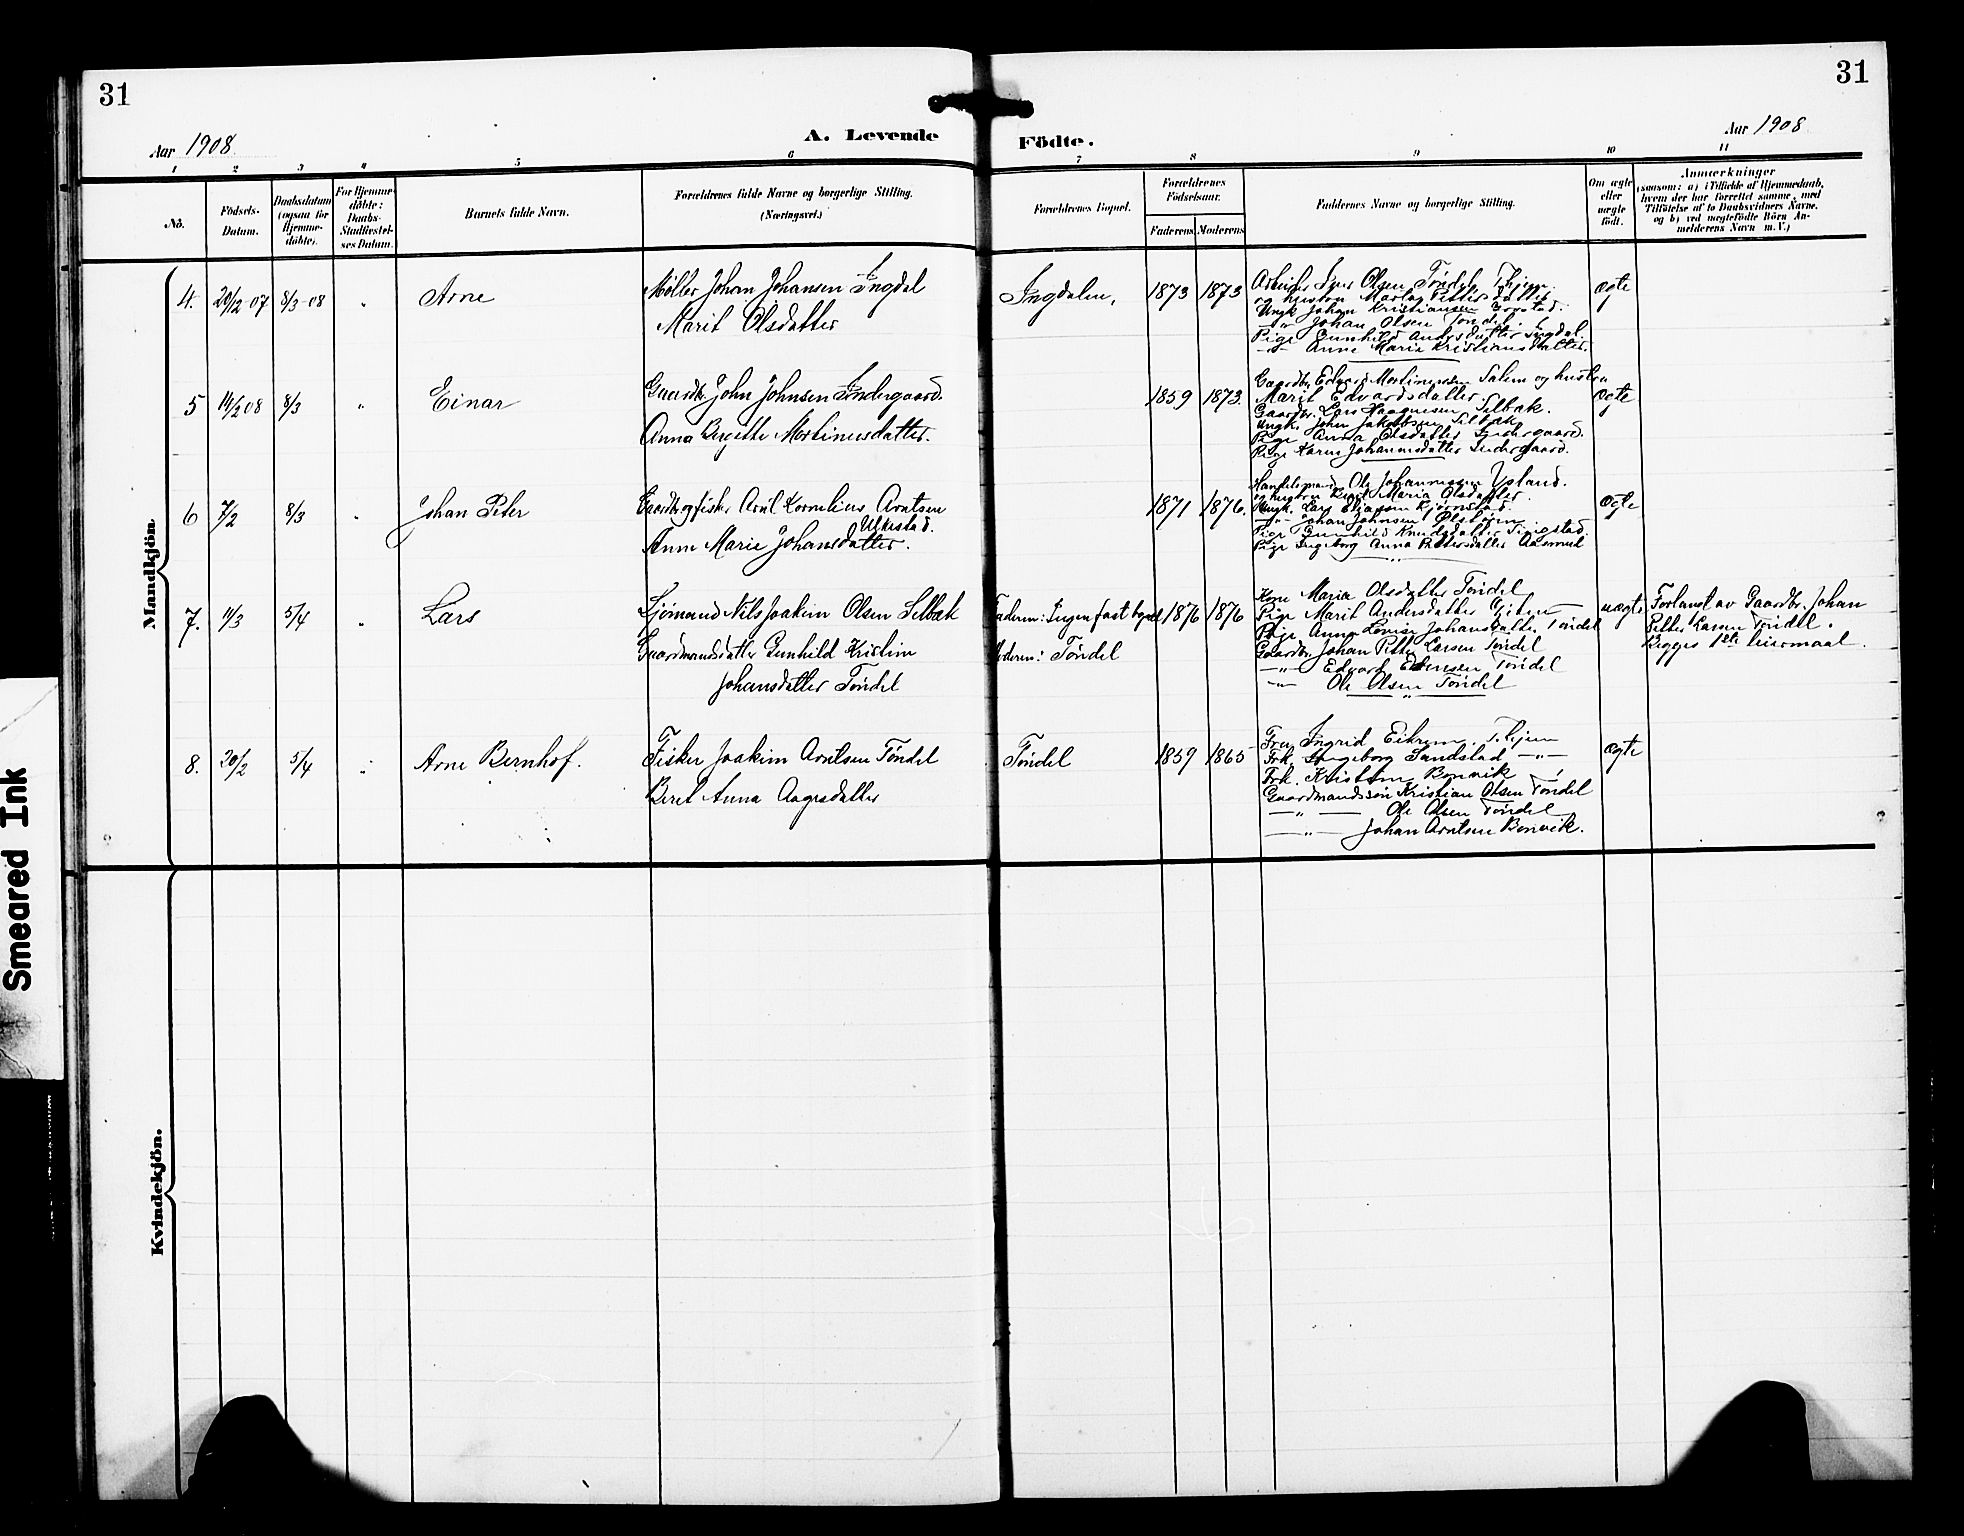 31
31
Aar 1908.
A. Levende
Födte.
Aar 1908
1 2 3 4 5 6 7 8 9 10 11
No.
Födsels-Datum.
Daabsdatum (ogsaa for Hjemme-döbte).
For Hjemme-döbte: Daabs-Stadfæstel-ses Datum.
Barnets fulde Navn.
Forældrenes fulde Navne og borgerlige Stilling. (Næringsvei.)
Forældrenes Bopæl.
Forældrenes Födselsaar.
Faderens Moderens
Faddernes Navne og borgerlige Stilling.
Om ægte eller uægte födt.
Anmærkninger
(saasom: a) i Tilfælde af Hjemmedaab,
hvem der har forrettet samme, med
Tilföielse af to Daabsvidners Navne,
og b) ved uægtefödte Börn An-
melderens Navn m. V.)
Mandkjön.
4. 20/12 07 8/3-08 " Arne
Møller Johan Johansen Ingdal
Marit Olsdatter
Ingdalen, 1873 1873
Arbeider Iver Olsen Tøndel,
og hustru Marta Pettersdatter
Ungk. Johan Kristiansen
-"- Johan Olsen Tøndel.
Pige Gunhild Andersdatter Ingdal
-"- Anne Marie Kristiansdatter.
ægte
5 14/2 08 8/3 " Einar
Gaardbr. John Johnsen Indergaard.
Anna Birgitte Mortinusdatter.
1859 1873.
Gaardbr. Edvard Mortinussen Salem og hustru
Marit Edvardsdatter
Gaardbr. Lars Haagensen Selbæk.
Ungk. John Jakobsen Selbæk
Pige Anna Olsdatter Indergaard.
Pige Karen Johannesdatter Indergaard.
ægte
6 7/2 8/3 " Johan Peter
Gaardbr og fisker Arnt Kornelius Arntsen
Ulvestad.
Anne Marie Johansdatter.
1871 1876.
Handelsmand Ole Johannessen Ysland.
og hustru Beret Maria Olsdatter.
Ungk. Lars Eliassen
-"- Johan Johnsen
Pige Gunhild Knudsdatter
Pige Ingeborg Anna Pettersdatter Aasmul
ægte
7. 11/3 5/4 " Lars
Sjömand Nils Joakim Olsen Selbæk
Gaardmandsdatter Gunhild Kristine
Johansdatter Tøndel
Faderen: Ingen fast bopæl
Moderen: Tøndel
1876 1876
Kone Maria Olsdatter Tøndel
Pige Marit Andersdatter
Pige Anna Lovise Johansdatter Tøndel
Gaardbr. Johan Petter Larsen Tøndel
-"- Edvard Edvensen Tøndel
-"- Ole Olsen Tøndel
uægte
Forlanst av Gaardbr. Johan
Petter Larsen Tøndel.
Begges 1ste leiermaal.
8. 20/2 5/4 " Arne Bernhof.
Fisker Joakim Arntsen Tøndel
Beret Anna Aagesdatter
Tøndel 1859 1865
Fru Ingrid Eikrem
Frk. Ingeborg Sandstad -"-
Frk. Kristine Bonvik
Gaardmandssøn Kristian Olsen Tøndel
-"- Ole Olsen Tøndel
-"- Johan Arntsen Bonvik.
ægte
Kvindekjön.
Smeared Ink